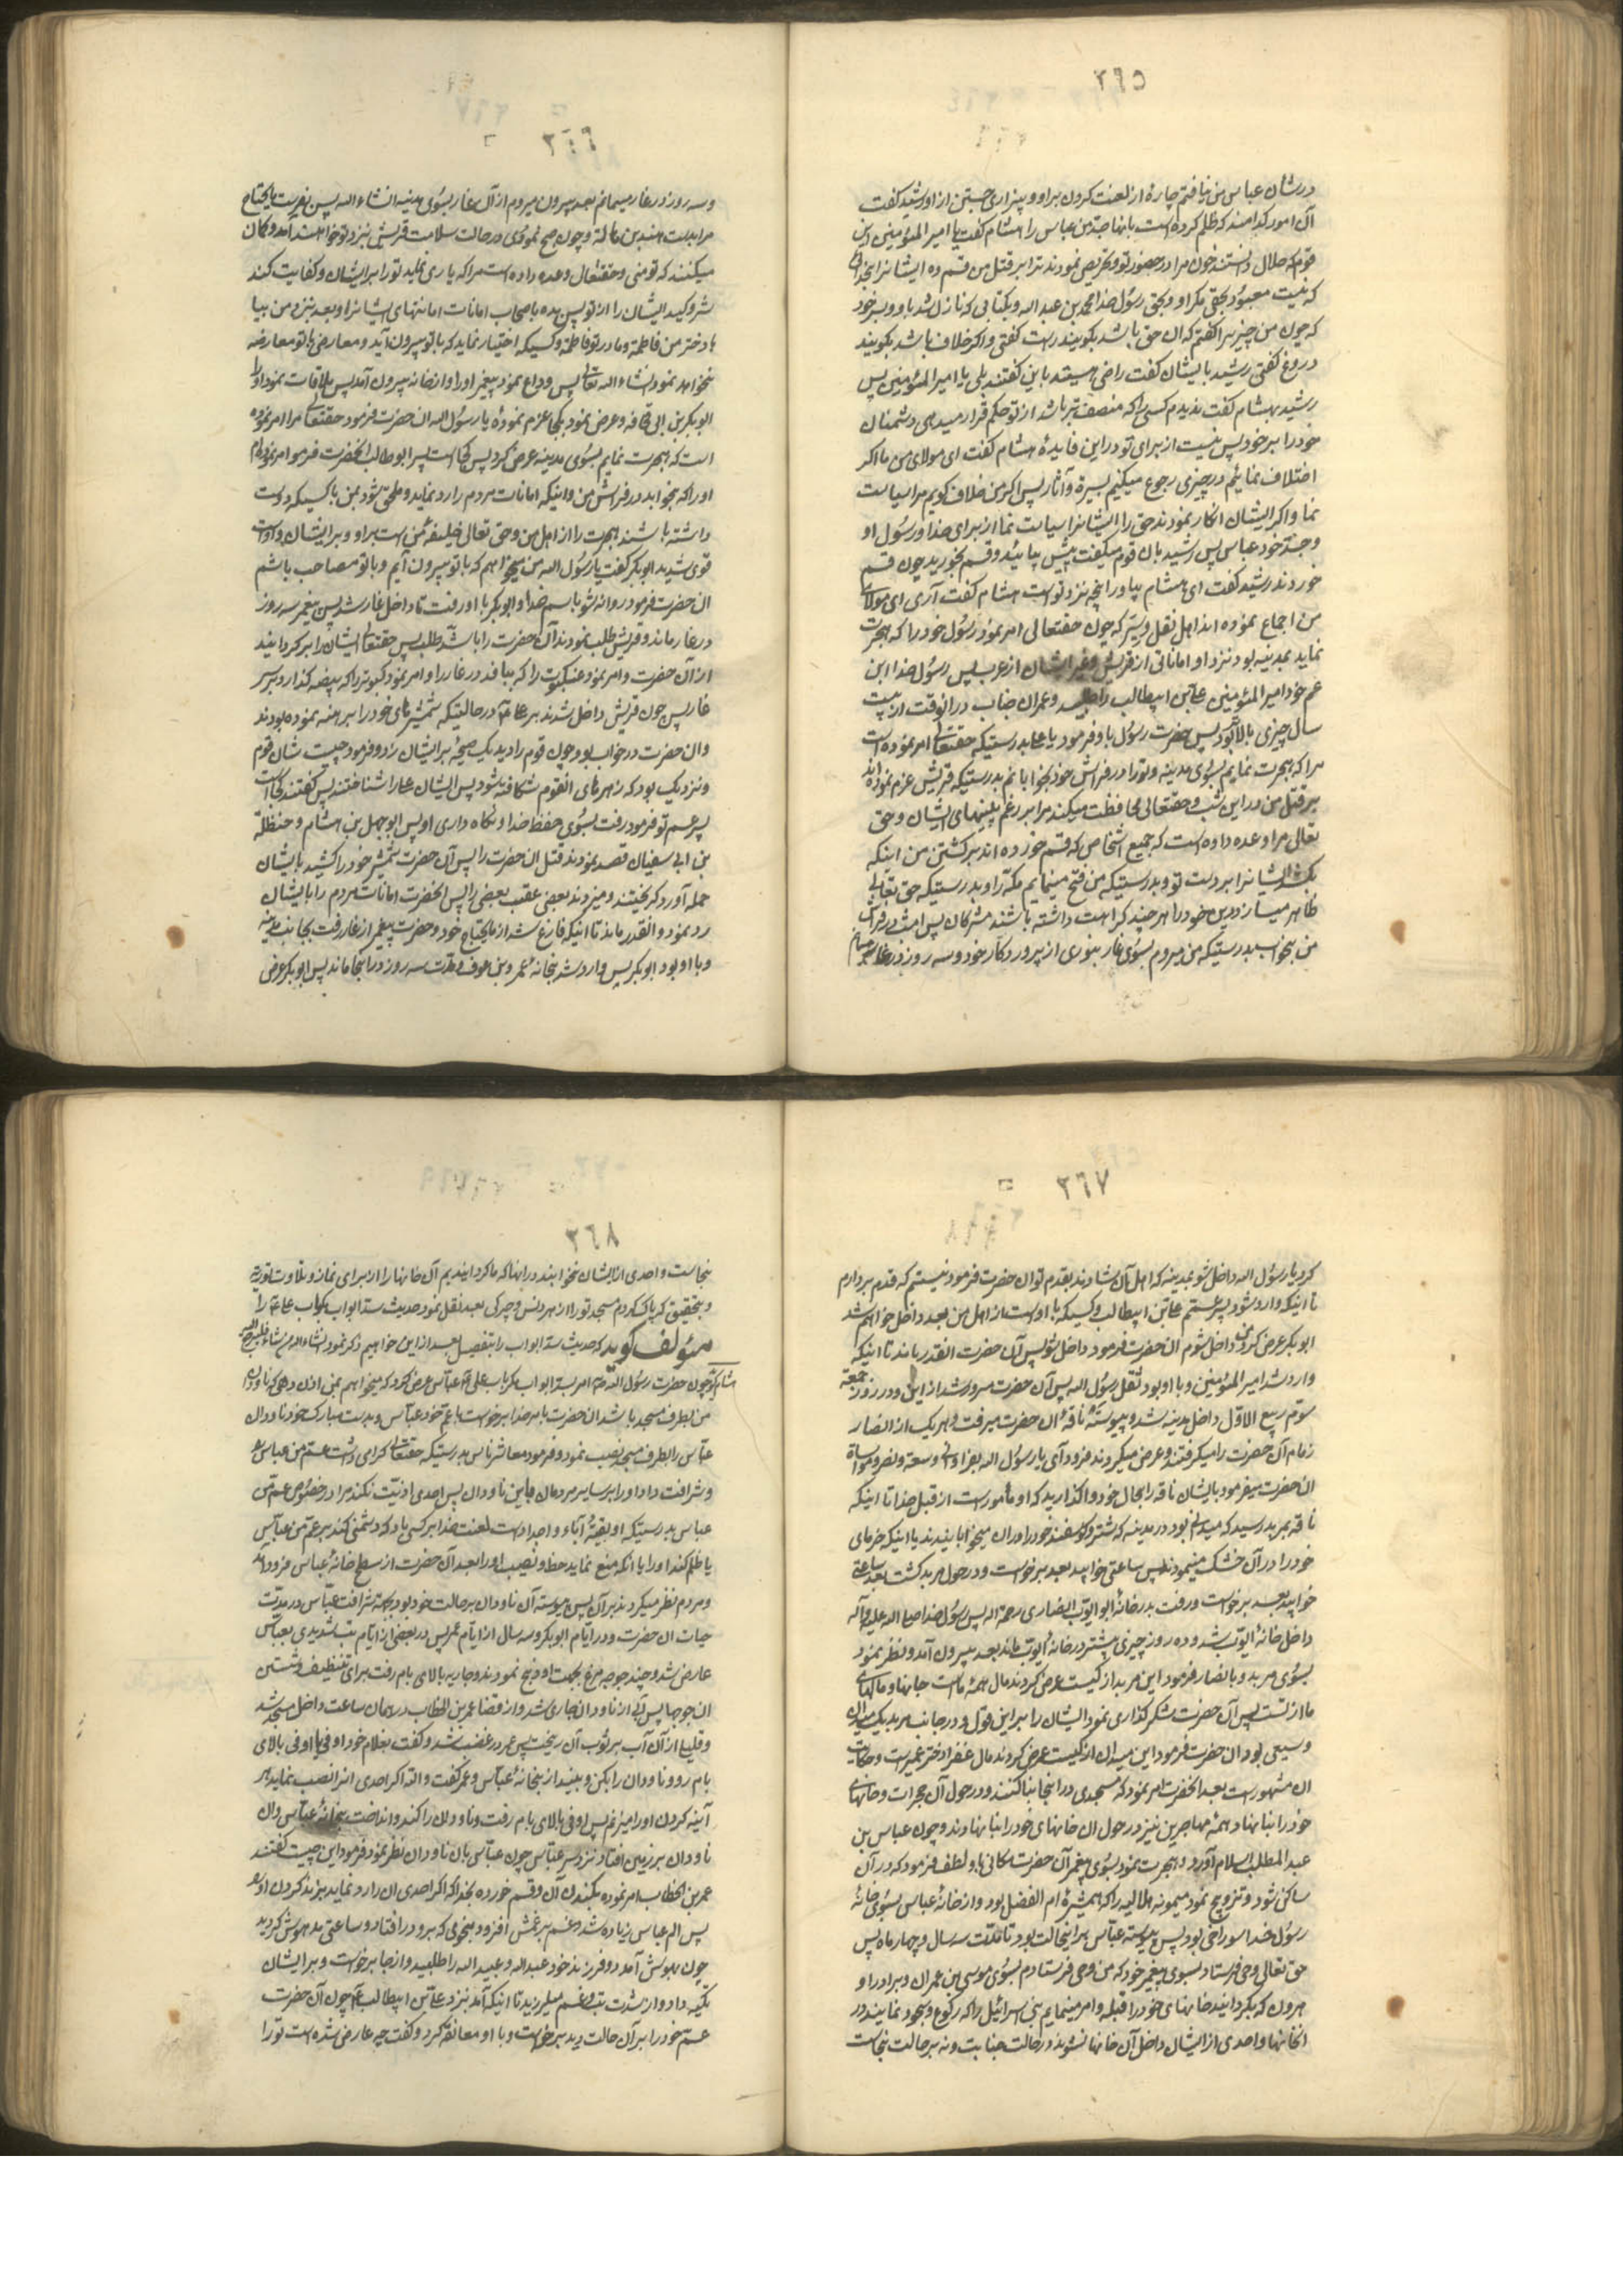 ٣٦٥
در شان عباس من نیافتم چارهٔ از لعنت کردن بر او و بیزاری جستن از او رشید کفت
آن امور کدامند که ظلم کرده است بانها جد من عباس را هشام کفت یا امیر المئومنین این
قوم که حلال دانستند خون مرا در حضور تو و تحریص نمودند ترا بر قتل من قسم ده ایشانرا بخدائی
که نیست معبود بحق مکر او و بحق رسول خدا محمد بن عبد الله و بکتابی که نازل شد باو و بسر خود
که چون من چیزیرا کفتم که آن حق باشد بکویند راست کفتی و اکر خلاف باشد بکویند
دروغ کفتی رشید بایشان کفت راضی هستید باین کفتند بلی یا امیر المئومنین پس
رشید بهشام کفت ندیدم کسی را که منصف تر باشد از تو حکم قرار میدهی دشمنان
خود را بر خود پس نیست از برای تو در این فایدهٔ هشام کفت ای مولای من ما اکر
اختلاف نمائیم در چیزی رجوع میکنیم بسیره و آثار پس اکر من خلاف کویم مرا سیاست
نما و اکر ایشان انکار نمودند حق را ایشانرا سیاست نما از برای خدا و رسول او
و جد خود عباس پس رشید بان قوم میکفت پیش بیائید و قسم بخورید چون قسم
خوردند رشید کفت ای هشام بیاور انچه نزد تو است هشام کفت آری ای مولای
من اجماع نموده اند اهل نقل و سیر که چون حقتعالی امر نمود رسول خود را که هجرت
نماید بمدینه بود نزد او اماناتی از قریش و غیر ایشان از عرب پس رسول خدا ابن
عم خود امیر المئومنین علی بن ابیطالب را طلبید و عمر ان جناب در انوقت از بیست
سال چیزی بالا بود پس حضرت رسول باو فرمود یا علی بدرستیکه حقتعالی امر نموده است
مرا که هجرت نمایم بسوی مدینه و تو را در فراش خود بخوابانم بدرستیکه قریش عزم نموده اند
بر قتل من در این شب و حقتعالی محافظت میکند مرا بر رغم بینیهای ایشان و حق
تعالی مرا وعده داده است که جمیع اشخاص که قسم خورده اند بر کشتن من اینکه
بکشد ایشانرا بر دست تو و بدرستیکه من فتح مینمایم مکه را و بدرستیکه حق تعالی
ظاهر میسازد دین خود را هر چند کراهت داشته باشند مشرکان پس امشب در فراش
من بخواب بدرستیکه من میروم بسوی غار بنوری از پروردکار خود و سه روز در غار میمانم
٣٦٦
و سه روز در غار میمانم بعد بیرون میروم از آن غار بسوی مدینه انشاء الله پس بفرست ما یحتاج
مرا بدست هند بن هاله و چون صبح نمودی در حالت سلامت قریش نزد تو خواهند آمد و کمان
میکنند که تو منی و حقتعالی وعده داده است مرا که یاری نماید تو را بر ایشان و کفایت کند
شر و کید ایشان را از تو پس بده باصحاب امانات امانتهای ایشانرا و بعد نزد من بیا
با دختر من فاطمه و مادر تو فاطمه و کسیکه اختیار نماید که با تو بیرون آید و معارضی با تو معارضه
نخواهد نمود انشاء الله تعالی پس وداع نمود پیغمبر او را و از خانه بیرون آمد پس ملاقات نمود او را
ابو بکر بن ابی قحافه و عرض نمود بکجا عزم نمودهٔ یا رسول الله ان حضرت فرمود حقتعالی مرا امر نموده
است که هجرت نمایم بسوی مدینه عرض کرد پس کجا است پسر ابو طالب انحضرت فرمود امر نموده ام
او را که بخوابد در فراش من و اینکه امانات مردم را رد نماید و ملحق شود بمن با کسیکه دوست
داشته باشند هجرت را از اهل من و حق تعالی خلیفه من است بر او و بر ایشان و او است
قوی شدید ابو بکر کفت یا رسول الله من میخواهم که با تو بیرون آیم و با تو مصاحب باشم
ان حضرت فرمود روانه شو باسم خدا و ابو بکر با او رفت تا داخل غار شد پس پیغمبر سه روز
در غار ماند و قریش طلب نمودند آن حضرت را باشد طلب پس حقتعالی ایشان را بر کردانید
از آن حضرت و امر نمود عنکبوت را که ببافد در غار را و امر نمود کبوتریرا که بیضه کذارد بر سر
غار پس چون قریش داخل شدند بر علی در حالتیکه شمشیرهای خود را برهنه نموده بودند
و ان حضرت در خواب بود چون قوم را دید یک صیحهٔ بر ایشان زد و فرمود چیست شان قوم
و نزدیک بود که زهرهای انقوم شکافته شود پس ایشان علی را شناختند پس کفتند کجا است
پسر عم تو فرمود رفت بسوی حفظ خدا و نکاه داری او پس ابو جهل بن هشام و حنظلة
بن ابی سفیان قصد نمودند قتل ان حضرت را پس آن حضرت شمشیر خود را کشید بایشان
حمله آورد کریختند و میزدند بعضی عقب بعضی را پس انحضرت امانات مردم را بایشان
رد نمود و انقدر ماند تا اینکه فارغ شد از ما یحتاج خود و حضرت پیغمبر از غار رفت بجانب مدینه
و با او بود ابو بکر پس وارد شد بخانهٔ عمرو بن عوف و مدت سه روز در انجا ماند پس ابو بکر عرض
٣٦٧
کرد یا رسول الله داخل شو بمدینه که اهل آن شادند بقدم تو ان حضرت فرمود نیستم که قدم بردارم
تا اینکه وارد شود پسر عمم علی بن ابیطالب و کسیکه با او است از اهل من بعد داخل خواهم شد
ابو بکر عرض کرد من داخل شوم ان حضرت فرمود داخل شو پس آن حضرت انقدر ماند تا اینکه
وارد شد امیر المئومنین و با او بود ثقل رسول الله پس آن حضرت مسرور شد از این و در روز جمعه
سوم ربیع الاول داخل مدینه شد و پیوسته ناقهٔ ان حضرت میرفت و هر یک از انصار
زمام آن حضرت را میکرفتند و عرض میکردند فرود آی یا رسول الله بعز اوفی و سعه و نصر و مواساة
ان حضرت میفرمود بایشان ناقه را بحال خود واکذارید که او مأمور است از قبل خدا تا اینکه
ناقه بمربد رسید که میدانی بود در مدینه که شتر و کوسفند خود را در ان میخوابانیدند یا اینکه خرمای
خود را در آن خشک مینمودند پس ساعتی خوابید بعد برخواست و در حول مربد کشت بعد ساعتی
خوابید بعد برخواست و رفت بدر خانهٔ ابو ایوب انصاری رحمه الله پس رسول خدا صلی الله علیه و آله
داخل خانهٔ ایوب شد و ده روز چیزی بیشتر در خانهٔ ایوب ماند بعد بیرون آمد و نظر نمود
بسوی مربد و بانصار فرمود این مربد از کیست عرض کردند مال همهٔ ما است جانها و مالهای
ما از تست پس آن حضرت شکر کذاری نمود ایشان را بر این قول و در جانب مربد یک میدان
وسیعی بود ان حضرت فرمود این میدان از کیست عرض کردند مال عفرا دختر عمیر است و حکایت
ان مشهور است بعد انحضرت امر نمود که مسجدی در انجا بنا کنند و در حول آن حجرات و خانهای
خود را بنا نهاد و همهٔ مهاجرین نیز در حول ان خانهای خود را بنا نهادند و چون عباس بن
عبد المطلب اسلام آورد و هجرت نمود بسوی پیغمبر آن حضرت مکانی باو لطف فرمود که در آن
ساکن شود و تزویج نمود میمونه هلالیه را که همشیرهٔ ام الفضل بود و از خانهٔ عباس بسوی خانهٔ
رسول خدا سوراخی بود پس پیوسته عباس بر اینحالت بود تا مدت سه سال و چهار ماه پس
حق تعالی وحی فرستاد بسوی پیغمبر خود که من وحی فرستادم بسوی موسی بن عمران و برادر او
هرون که بکردانید خانهای خود را قبله و امر مینمایم بنی اسرائیل را که رکوع و سجود نمایند در
انخانها و احدی از ایشان داخل آن خانها نشوند در حالت جنابت و نه بر حالت نجاست
٣٦٨
نجاست و احدی از ایشان نخوابند در انها که ما کردانیدیم آن خانها را از برای نماز و تلاوت توریة
و بتحقیق که پاک کردم مسجد تو را از هر دنس و چرکی بعد نقل نمود حدیث سد ابواب مکر باب علی را
مؤلف کوید که حدیث سد ابواب را بتفصیل بعد از این خواهیم ذکر نمود انشاء الله
هشام کوید چون حضرت رسول الله ص امر بسد ابواب مکر باب علی عباس عرض کرد که میخواهم بمن اذن دهی که ناودان
من بطرف مسجد باشد ان حضرت بامر خدا برخواست با عم خود عباس و بدست مبارک خود ناودان
عباس را بطرف مسجد نصب نمود و فرمود معاشر ناس بدرستیکه حقتعالی کرامی داشت عم من عباس را
و شرافت داد او را بر سایر مردمان باین ناودان پس احدی اذیت نکند مرا در خصوص عم من
عباس بدرستیکه او بقیهٔ آباء و اجداد است لعنت خدا بر کسی باد که دشمنی کند بر عم من عباس
یا ظلم کند او را یا انکه منع نماید حظ و نصیب او را بعد آن حضرت از سطح خانهٔ عباس فرود آمد
و مردم نظر میکردند بر آن پس پیوسته آن ناودان بر حالت خود بود بجهة شرافت عباس در مدت
حیات ان حضرت و در ایام ابو بکر و سه سال از ایام عمر پس در بعضی از ایام تب شدیدی بعباس
عارض شد و چند جوجه مرغ بجهت او ذبح نمودند و جاریه بالای بام رفت برای تنظیف و شستن
ان جوجها پس آبی از ناودان جاری شد و از قضا عمر بن الخطاب در همان ساعت داخل مسجد شد
و قلیل از آن آب بر ثوب آن ریخت پس عمر در غضب شد و کفت بغلام خود اوفی یا اوفی بالای
بام رو و ناودان را بکن و بیند از بخانهٔ عباس و عمر کفت والله اکر احدی انرا نصب نماید هر
آینه کردن او را میزنم پس اوفی بالای بام رفت و ناودان را کند و انداخت بخانهٔ عباس و ان
ناودان بر زمین افتاد نزد سر عباس چون عباس بان ناودان نظر نمود فرمود این چیست کفتند
عمر بن الخطاب امر نموده بکندن آن و قسم خورده بخدا که اکر احدی ان را رد نماید بزند کردن او را
پس الم عباس زیاده شد و غم بر غمش افزود بنحوی که برو در افتاد و ساعتی مدهوش کردید
چون بهوش آمد دو فرزند خود عبد الله و عبید الله را طلبید و از جا برخواست و بر ایشان
تکیه داد و از شدت تب و غم میلرزید تا اینکه آمد نزد علی بن ابیطالب چون آن حضرت
عم خود را بر آن حالت دید برخواست و با او معانقه کرد و کفت چه عارض شده است تو را